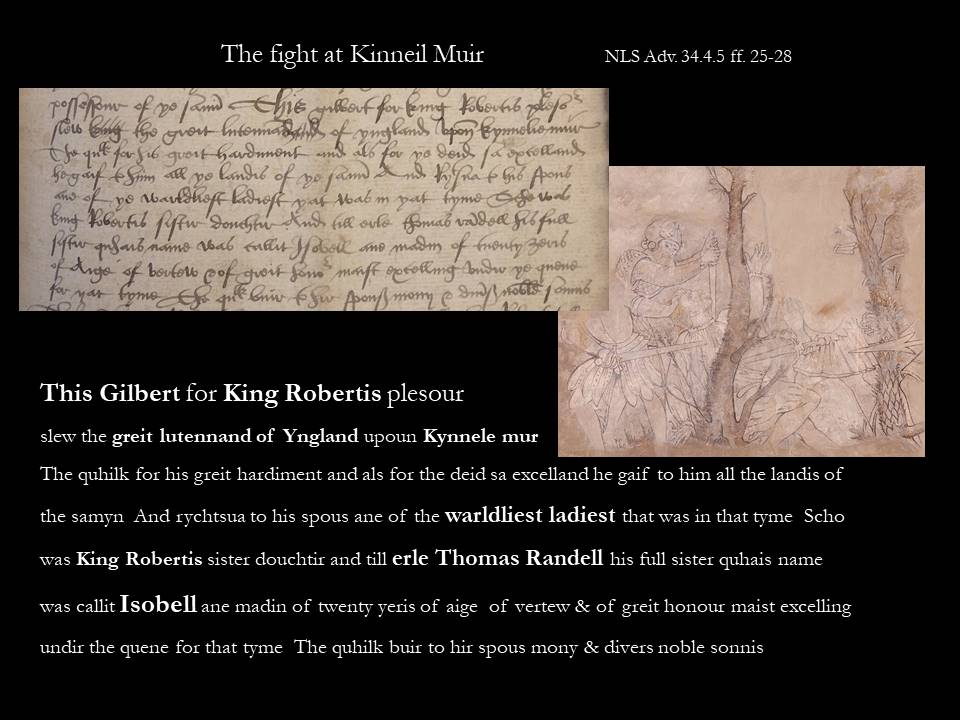 The fight at Kinneil Muir
NLS Adv. 34.4.5 ff. 25-28
possessour of ye samin This gilbert for king Robertis plesor
slew the greit lutennand of yngland upon kynnele mur
The quhilk for his greit hardiment and als for ye deid sa excelland
he gaif to him all ye landis of ye samin And to his spous
ane of ye warldliest ladiest yat was in yat tyme Scho was
king Robertis sister douchtir And till erle thomas randell his full
sister quhais name was callit Isobell ane madin of twenty yeris
of aige of vertew & of greit honour maist excelling undir ye quene
for yat tyme The quhilk buir to hir spous mony & divers noble sonnis
This Gilbert for King Robertis plesour
slew the greit lutennand of Yngland upoun Kynnele mur
The quhilk for his greit hardiment and als for the deid sa excelland he gaif to him all the landis of
the samyn And rychtsua to his spous ane of the warldliest ladiest that was in that tyme Scho
was King Robertis sister douchtir and till erle Thomas Randell his full sister quhais name
was callit Isobell ane madin of twenty yeris of aige of vertew & of greit honour maist excelling
undir the quene for that tyme The quhilk buir to hir spous mony & divers noble sonnis